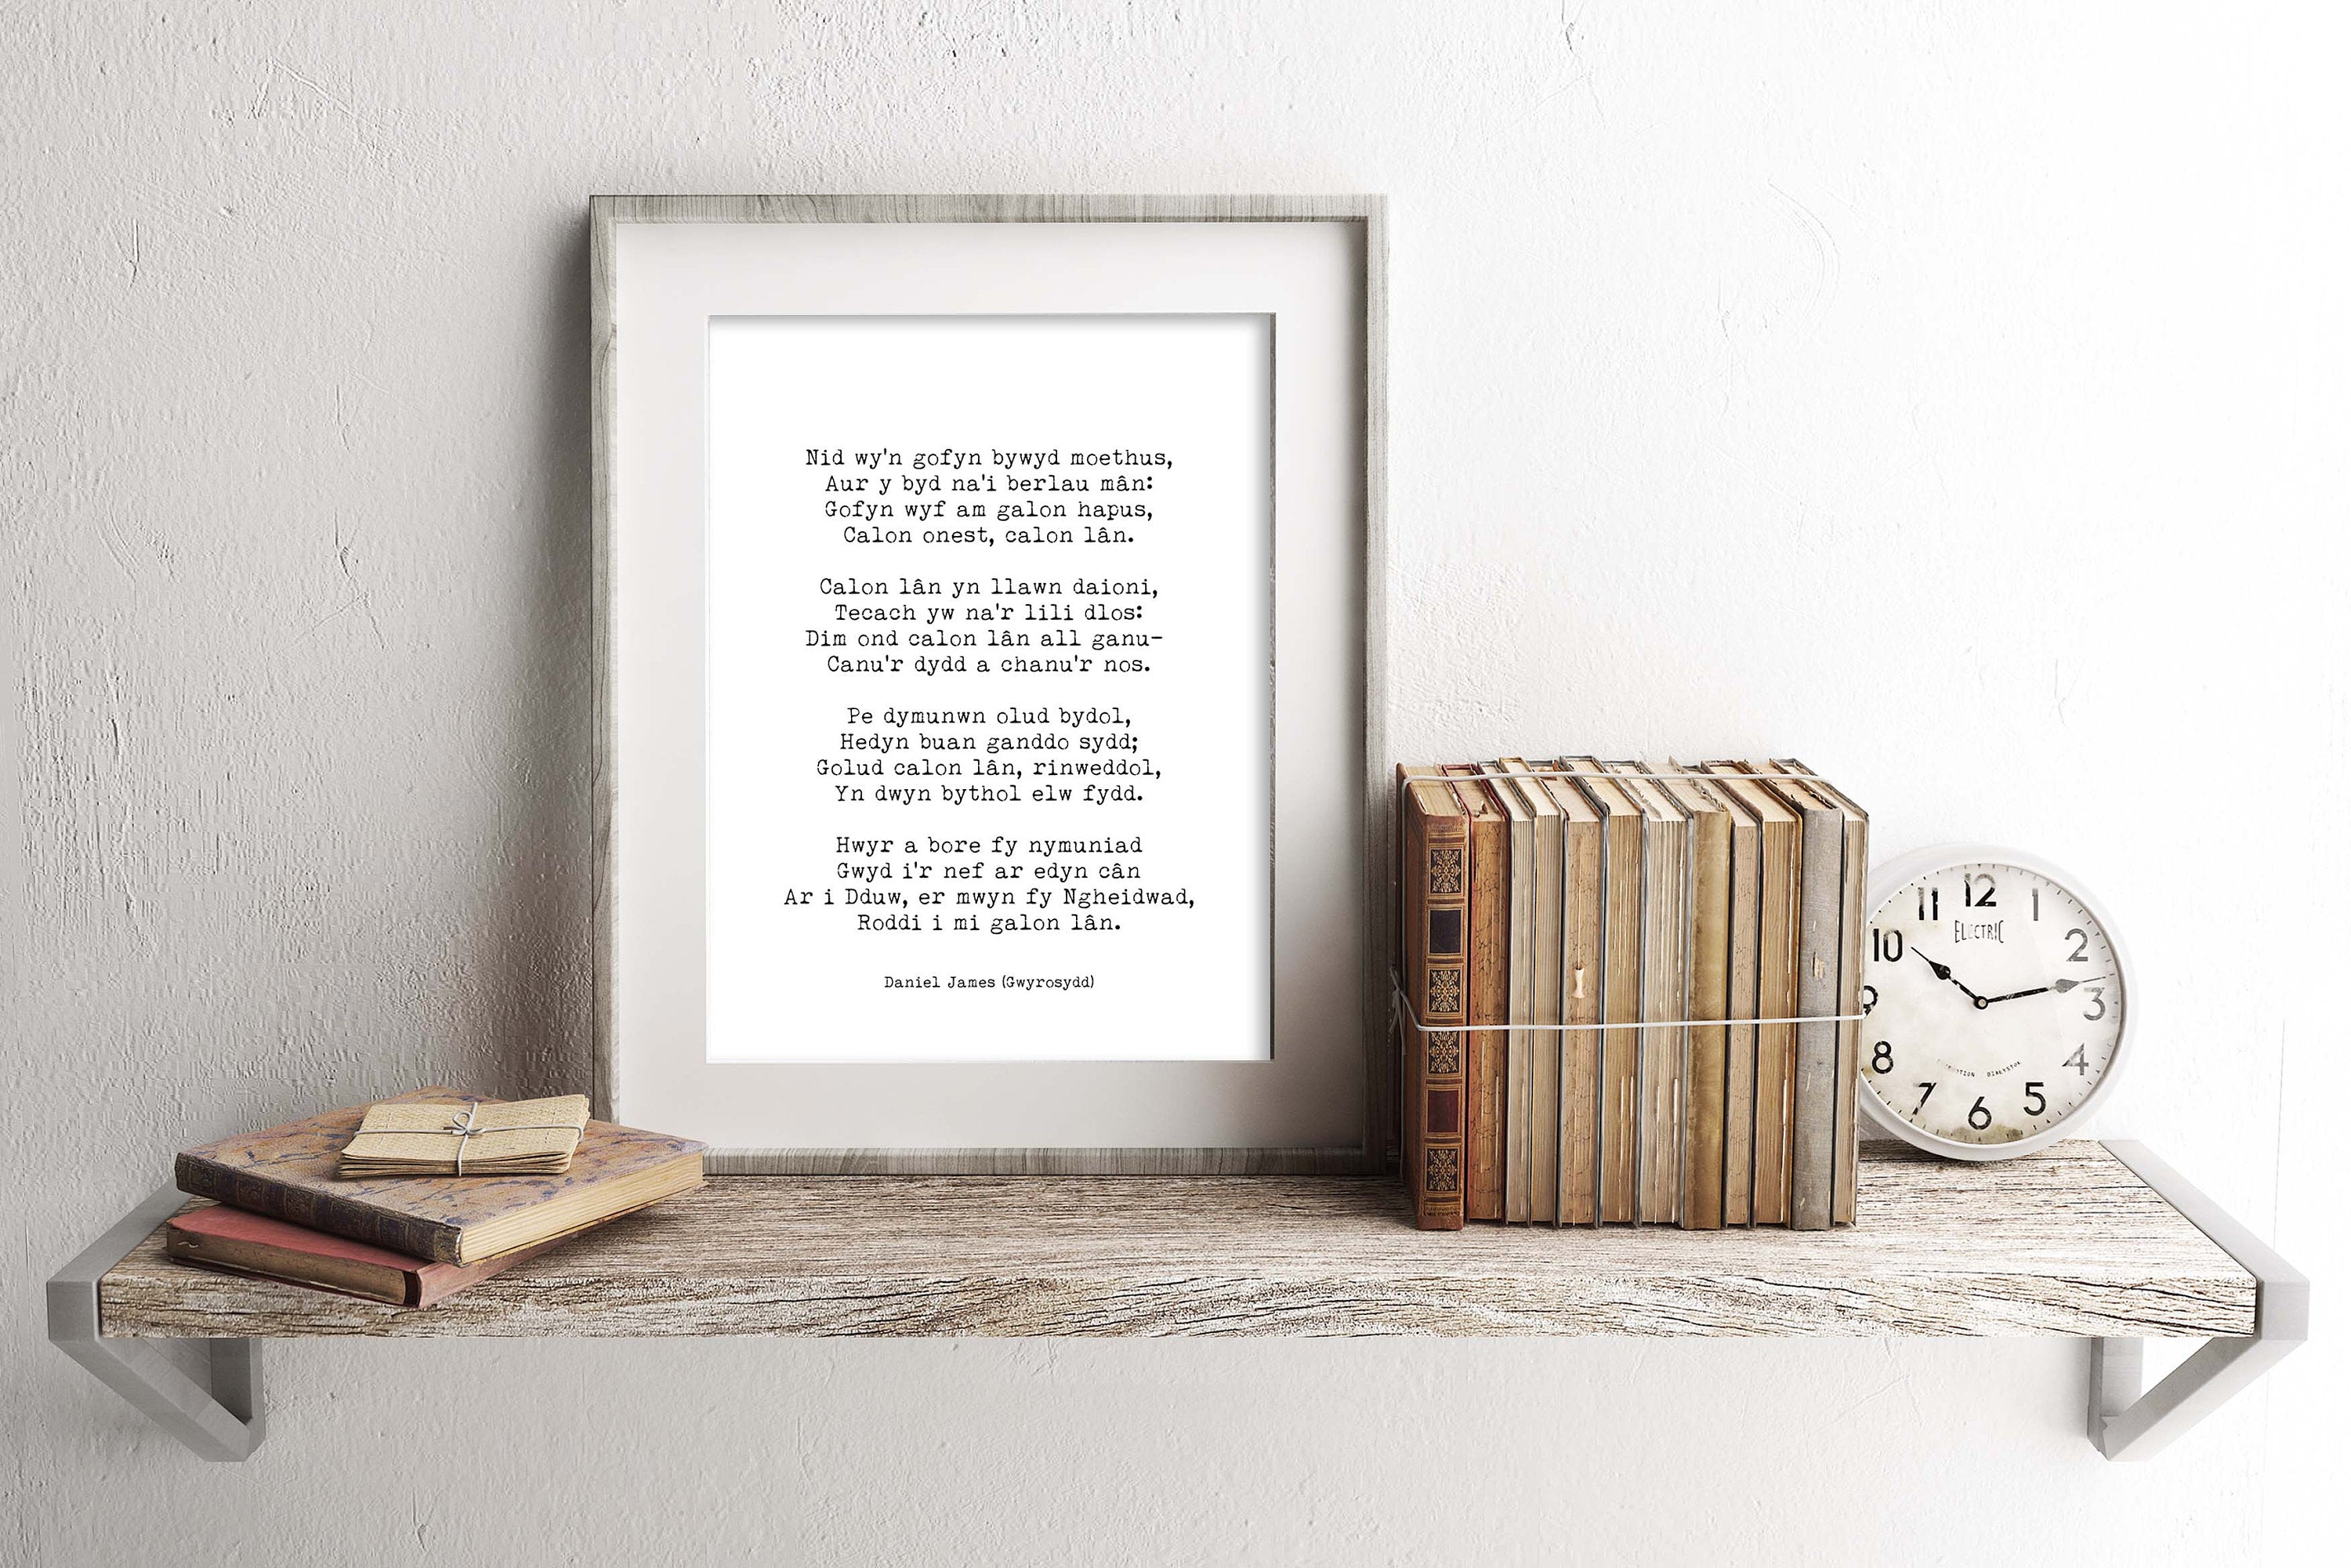 Nid wy'n gofyn bywyd moethus,
Aur y byd na'i berlau mân:
Gofyn wyf am galon hapus,
Calon onest, calon lân.
Calon lân yn llawn daioni,
Tecach yw na'r lili dlos:
Dim ond calon lân all ganu-
Canu'r dydd a chanu'r nos.
Pe dymunwn olud bydol,
Hedyn buan ganddo sydd;
Golud calon lân, rinweddol,
Yn dwyn bythol elw fydd.
Hwyr a bore fy nymuniad
Gwyd i'r nef ar edyn cân
Ar i Dduw, er mwyn fy Ngheidwad,
Roddi i mi galon lân.
Daniel James (Gwyrosydd)
12
11 1
ELECTRIC
10 2
9 3
8 4
7 5
6